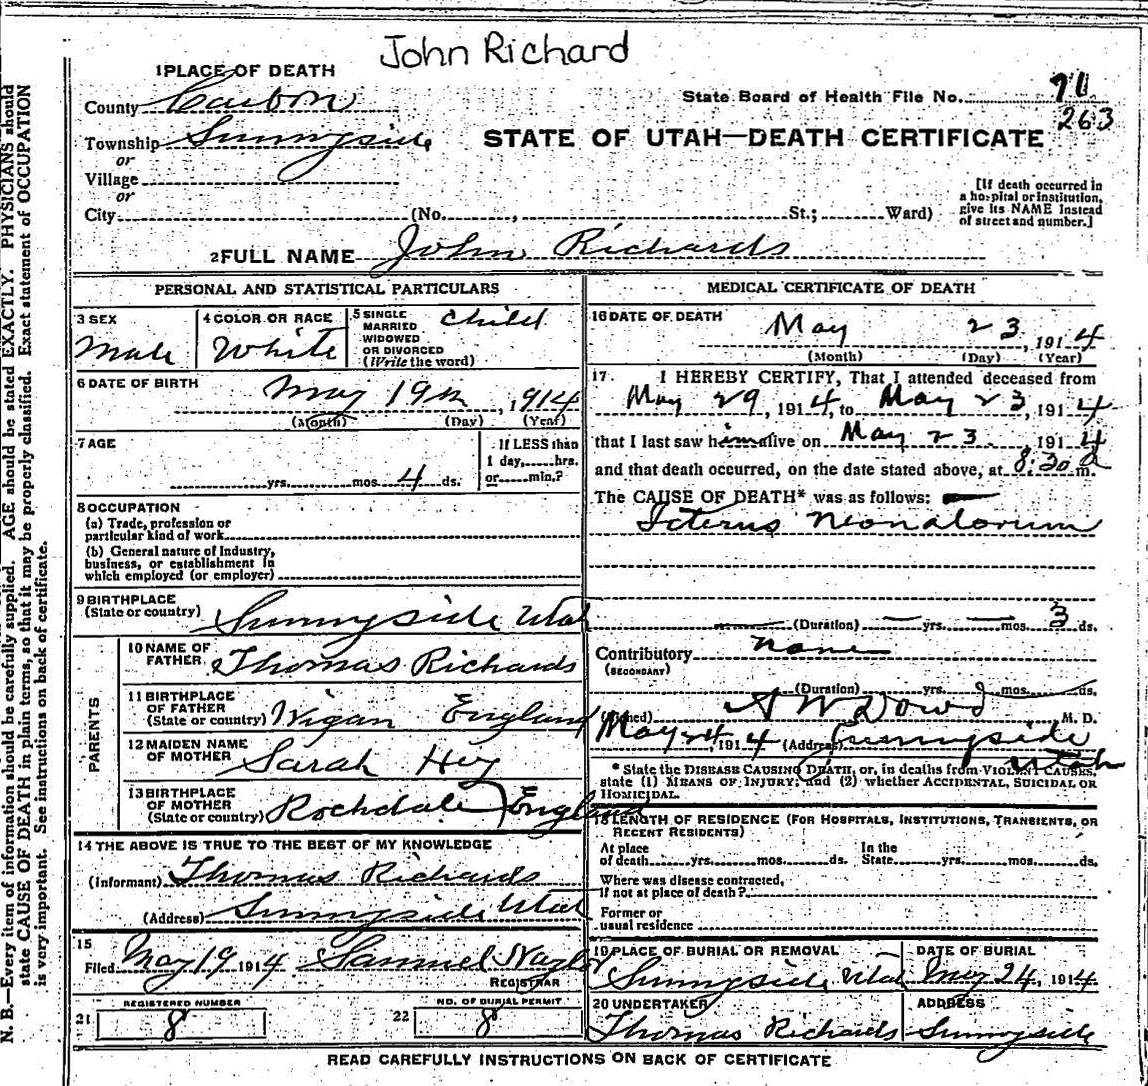 John Richard
1 PLACE OF DEATH
County Carbon
State Board of Health File No. 71
263
Township Sunnyside
STATE OF UTAH—DEATH CERTIFICATE
or
Village
or
City (No. , St.; Ward)
[If death occurred in a hospital or institution, give its NAME instead of street and number.]
2 FULL NAME John Richards
PERSONAL AND STATISTICAL PARTICULARS
3 SEX
Male
4 COLOR OR RACE
White
5 SINGLE MARRIED WIDOWED OR DIVORCED (Write the word)
Child
6 DATE OF BIRTH
May 19th, 1914
(Month) (Day) (Year)
7 AGE
If LESS than
1 day, hrs.
yrs. mos. 4 ds. or min.?
8 OCCUPATION
(a) Trade, profession or
particular kind of work
(b) General nature of Industry,
business, or establishment in
which employed (or employer)
9 BIRTHPLACE
(State or country) Sunnyside Utah
PARENTS
10 NAME OF
FATHER Thomas Richards
11 BIRTHPLACE
OF FATHER
(State or country) Wigan England
12 MAIDEN NAME
OF MOTHER Sarah Hey
13 BIRTHPLACE
OF MOTHER
(State or country) Rochdale England
14 THE ABOVE IS TRUE TO THE BEST OF MY KNOWLEDGE
(Informant) Thomas Richards
(Address) Sunnyside Utah
15
Filed May 19 1914 Samuel Naylor
REGISTRAR
REGISTERED NUMBER
21 8
NO. OF BURIAL PERMIT
22 8
MEDICAL CERTIFICATE OF DEATH
16 DATE OF DEATH
May 23, 1914
(Month) (Day) (Year)
17. I HEREBY CERTIFY, That I attended deceased from
May 29, 1914, to May 23, 1914
that I last saw him alive on May 23, 1914
and that death occurred, on the date stated above, at 8:30 a m.
The CAUSE OF DEATH* was as follows:
Icterus Neonatorum
(Duration) yrs. mos. 3 ds.
Contributory None
(SECONDARY)
(Duration) yrs. mos. ds.
(Signed) A W Dowd M. D.
May 24, 1914 (Address) Sunnyside
Utah
* State the DISEASE CAUSING DEATH, or, in deaths from VIOLENT CAUSES,
state (1) MEANS OF INJURY; and (2) whether ACCIDENTAL, SUICIDAL OR
HOMICIDAL.
18 LENGTH OF RESIDENCE (FOR HOSPITALS, INSTITUTIONS, TRANSIENTS, OR
RECENT RESIDENTS)
At place In the
of death yrs. mos. ds. State yrs. mos. ds.
Where was disease contracted,
if not at place of death?
Former or
usual residence
19 PLACE OF BURIAL OR REMOVAL
Sunnyside Utah
DATE OF BURIAL
May 24, 1914
20 UNDERTAKER
Thomas Richards
ADDRESS
Sunnyside
READ CAREFULLY INSTRUCTIONS ON BACK OF CERTIFICATE
N. B.—Every item of information should be carefully supplied. AGE should be stated EXACTLY. PHYSICIANS should
state CAUSE OF DEATH in plain terms, so that it may be properly classified. Exact statement of OCCUPATION
is very important. See instructions on back of certificate.